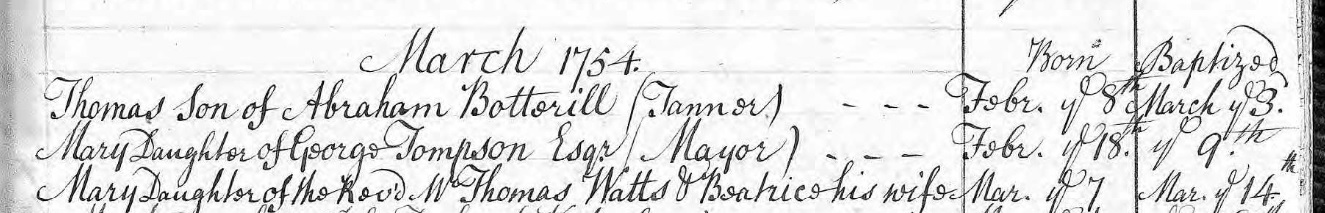 March 1754. Born Baptized
Thomas Son of Abraham Botterill (Tanner) - - - Febr. ye 8th March ye 3.
Mary Daughter of George Tompson Esqr. (Mayor) - - - Febr. ye 18.th ye 9.th
Mary Daughter of the Revd. Mr Thomas Watts & Beatrice his wife Mar. ye 7 Mar. ye 14th